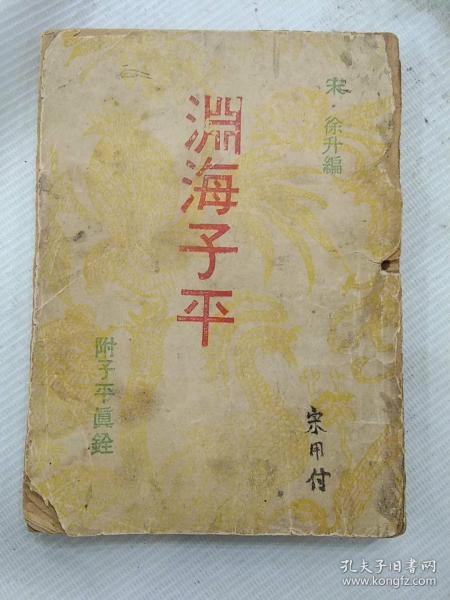 宋 徐升編
淵海子平
附子平眞銓
宗用付
孔夫子旧书网
www.kongfz.com